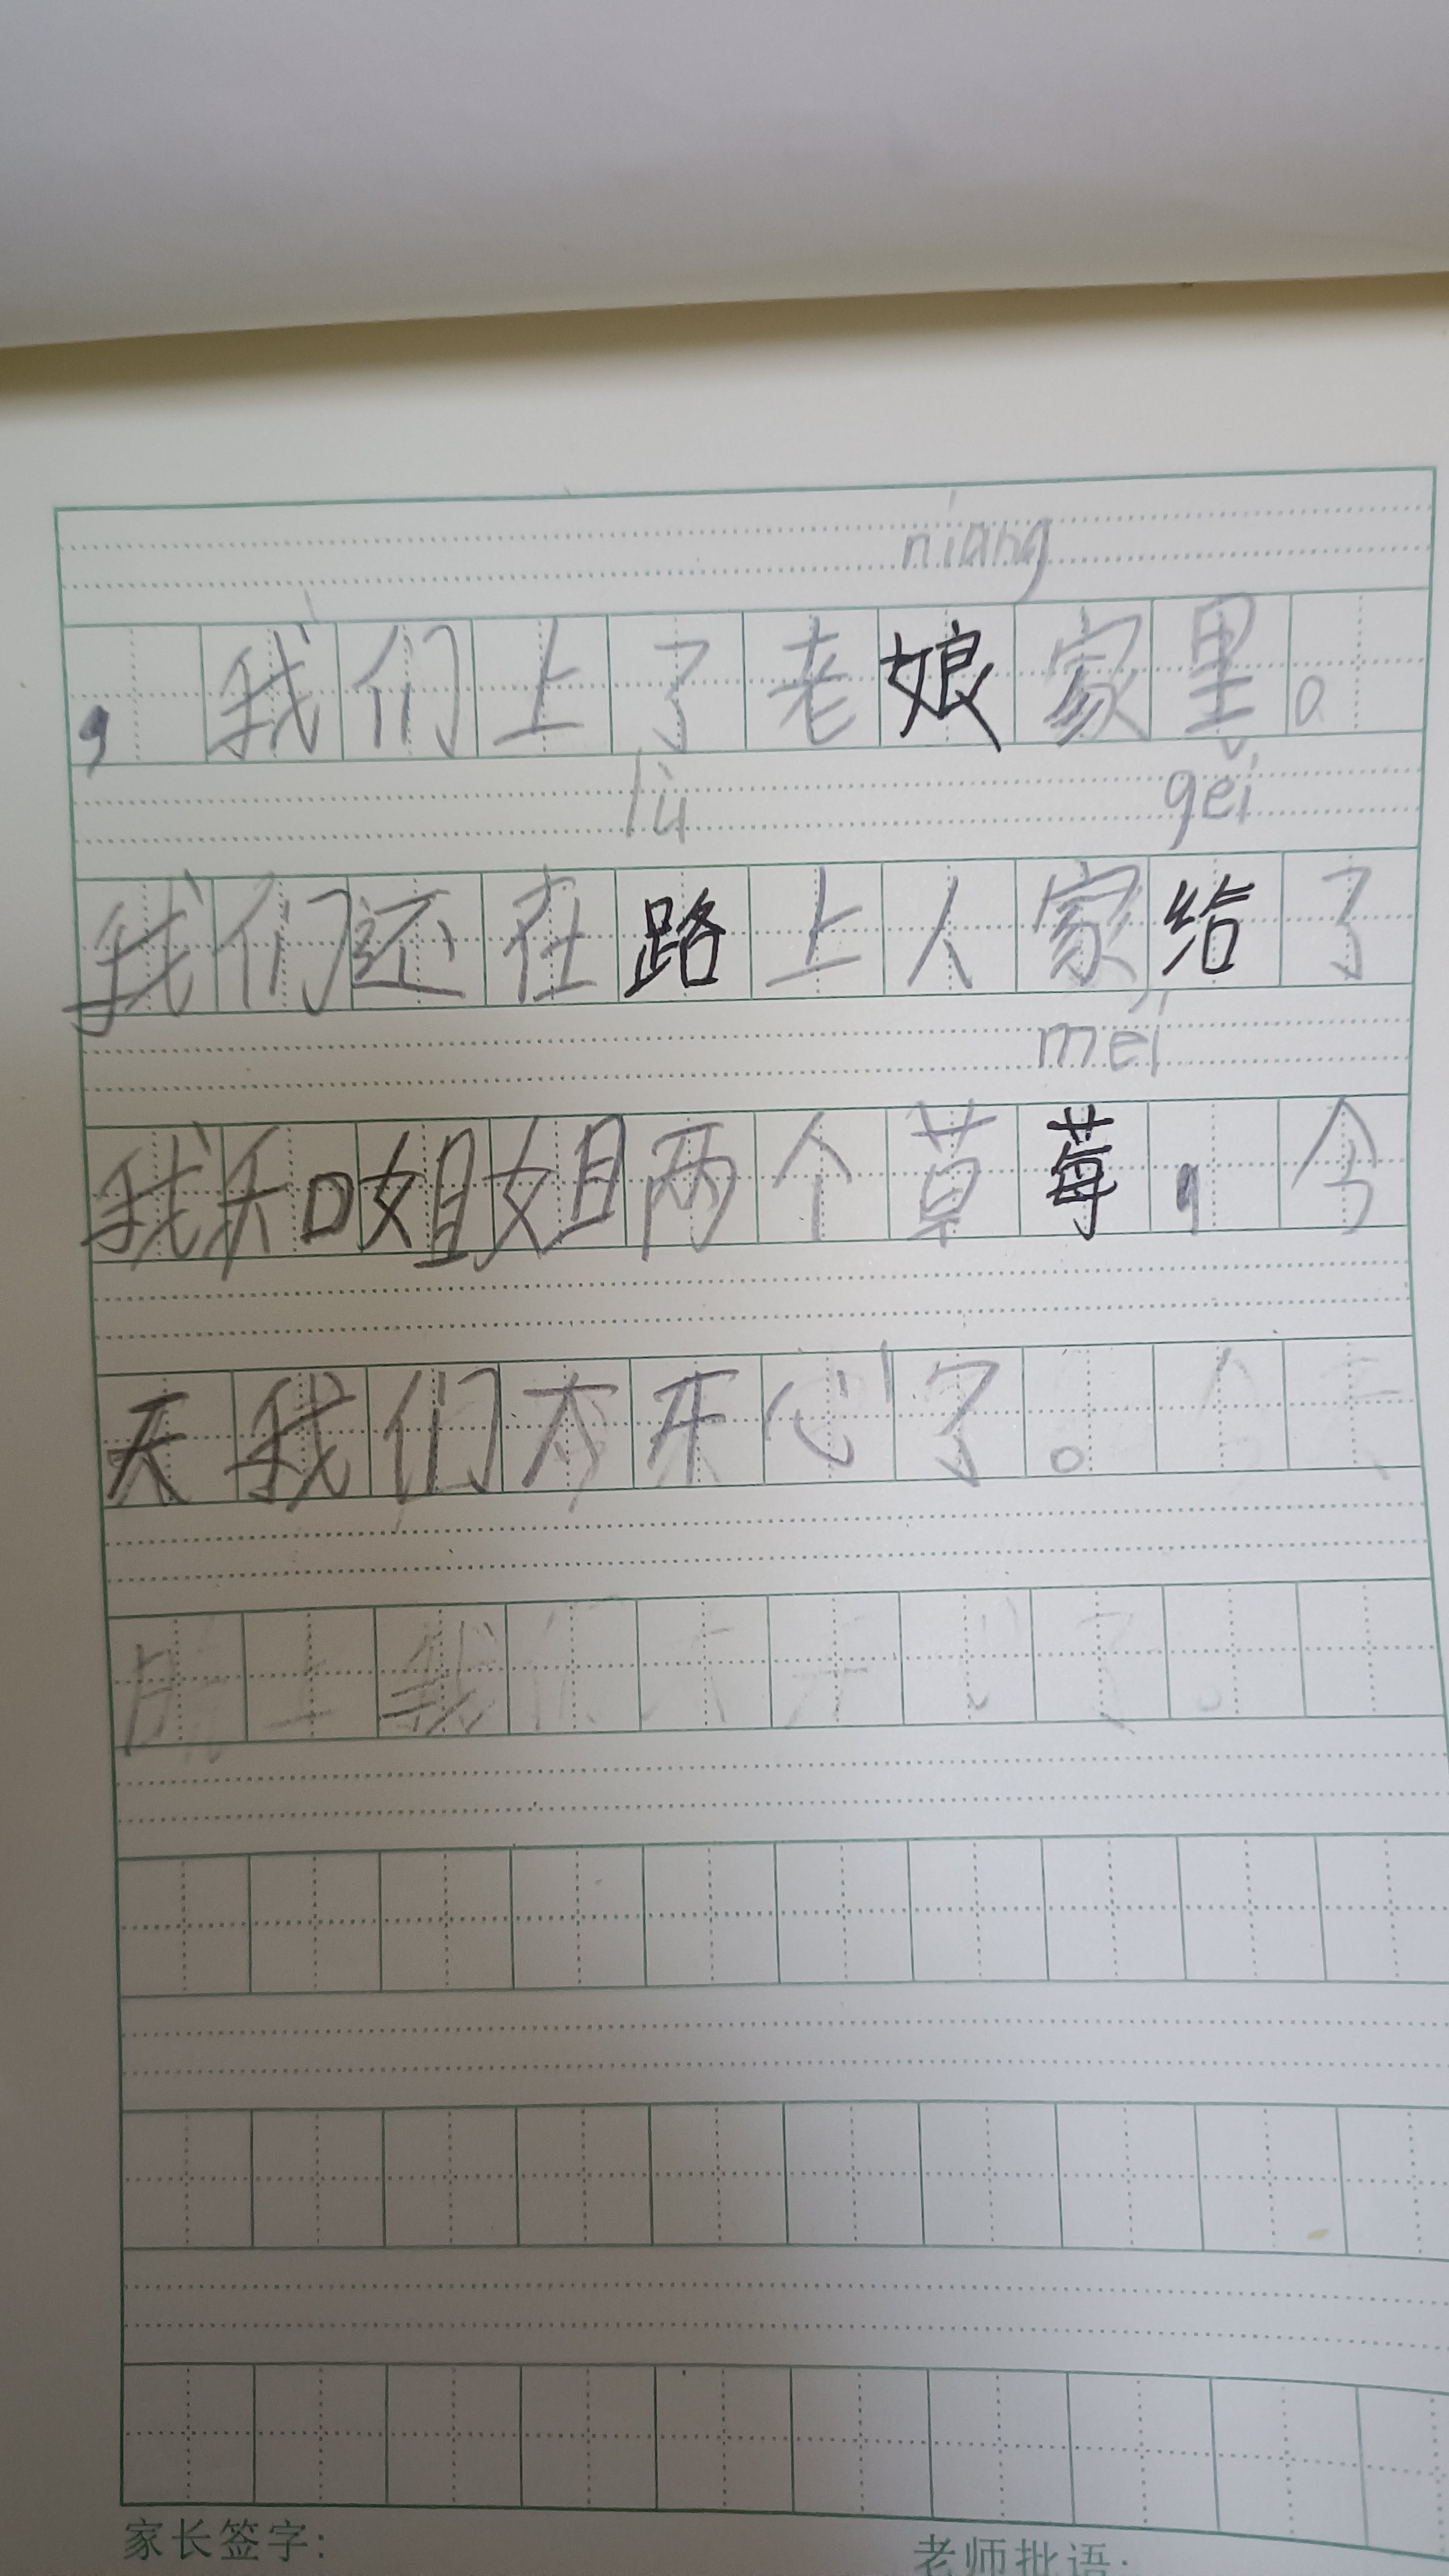 niáng
，我们上了老娘家里。
lù gěi
我们还在路上人家给了
méi
我和姐姐两个草莓，今
天我们太开心了。
家长签字：
老师批语：